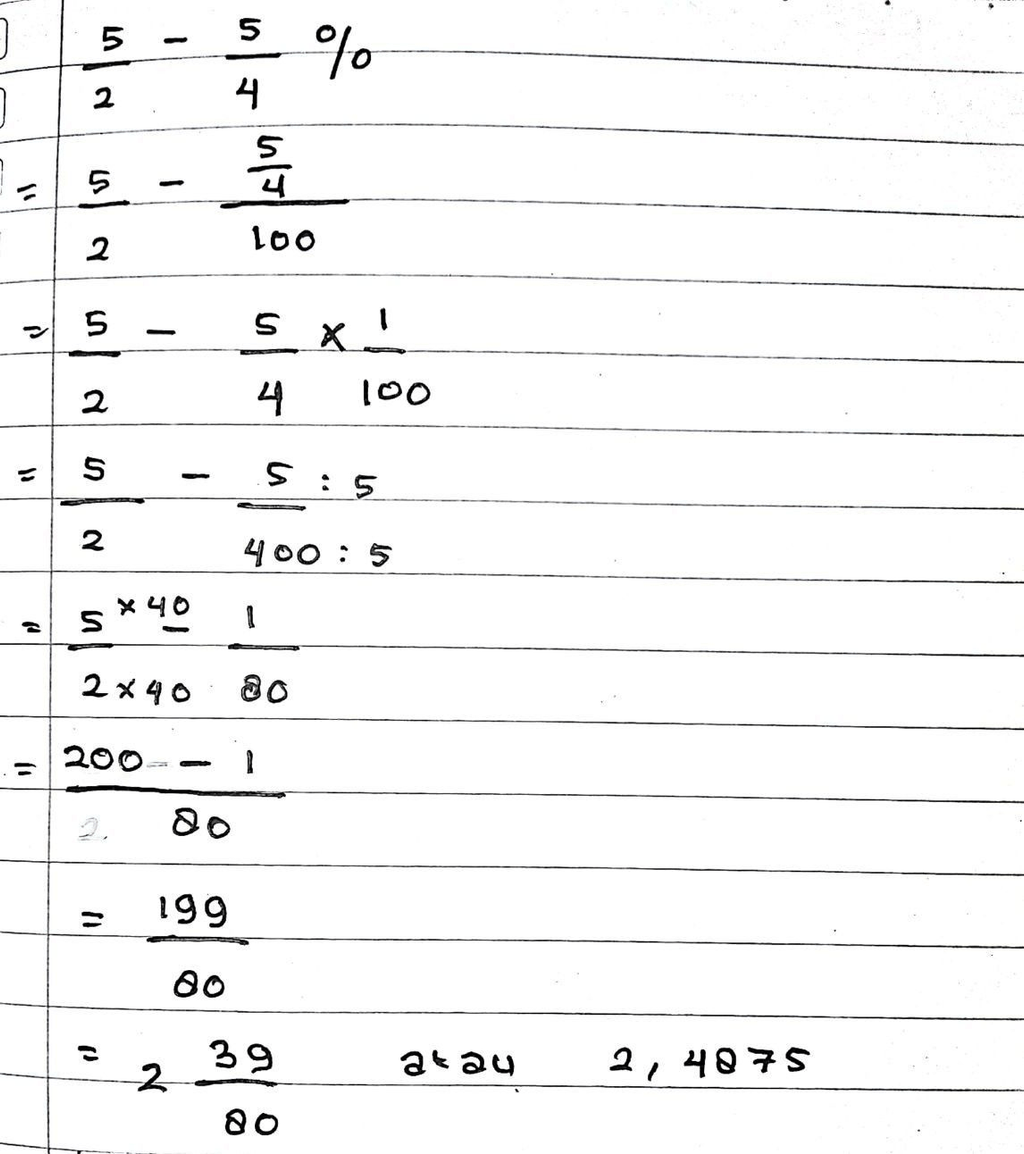 5/2 - 5/4 %
= 5/2 - (5/4)/100
= 5/2 - 5/4 × 1/100
= 5/2 - 5 : 5/400 : 5
= 5 × 40/2 × 40 - 1/80
= 200 - 1/80
= 199/80
= 2 39/80 atau 2,4875